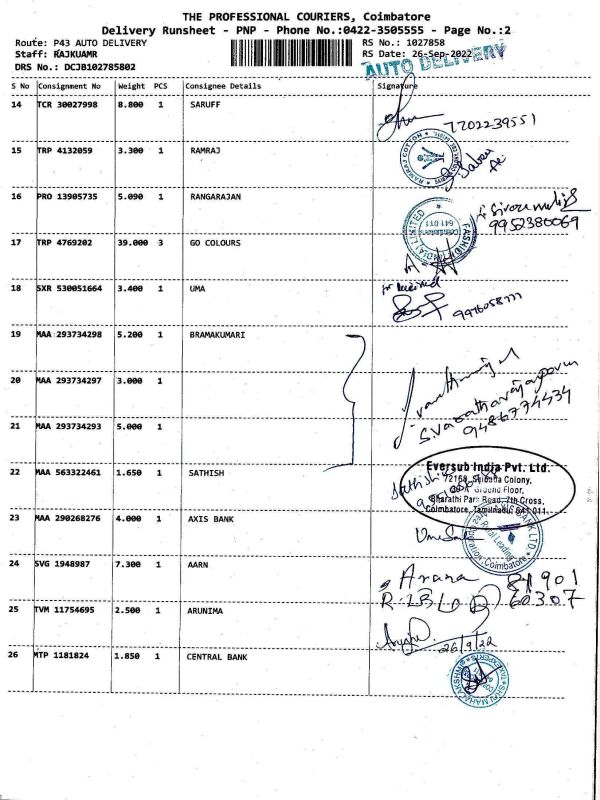 THE PROFESSIONAL COURIERS, Coimbatore
Delivery Runsheet - PNP - Phone No.:0422-3505555 - Page No.:2
Route: P43 AUTO DELIVERY RS No.: 1027858
Staff: RAJKUAMR RS Date: 26-Sep-2022
DRS No.: DCJB102785802 AUTO DELIVERY
S No Consignment No Weight PCS Consignee Details Signature
14 TCR 30027998 8.800 1 SARUFF
7702239551
15 TRP 4132059 3.300 1 RAMRAJ
RAMRAJ COTTON
16 PRO 13905735 5.090 1 RANGARAJAN
9952380069
17 TRP 4769202 39.000 3 GO COLOURS
FASHION INDIA LIMITED
641 011
18 SXR 530051664 3.400 1 UMA
received
9976058777
19 MAA 293734298 5.200 1 BRAMAKUMARI
20 MAA 293734297 3.000 1
21 MAA 293734293 5.000 1
9486774434
22 MAA 563322461 1.650 1 SATHISH
Sathish
Eversub India Pvt. Ltd.
Ground Floor,
Bharathi Park Road, 7th Cross,
Coimbatore, Tamilnadu, 641 011.
23 MAA 290268276 4.000 1 AXIS BANK
BANK LTD.
Coimbatore
24 SVG 1948987 7.300 1 AARN
81901
60307
25 TVM 11754695 2.500 1 ARUNIMA
26/9/22
26 MTP 1181824 1.850 1 CENTRAL BANK